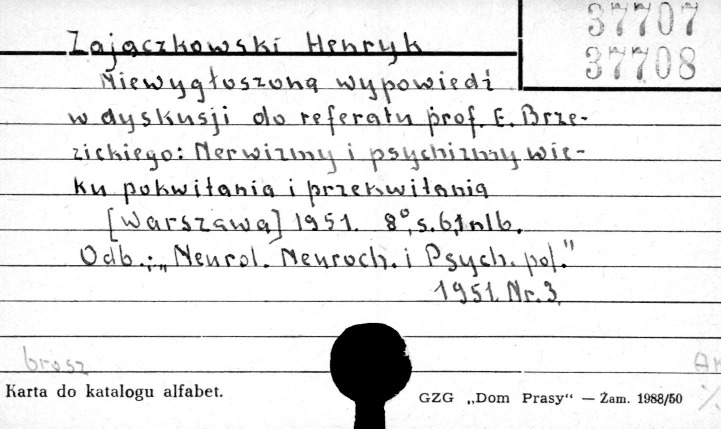 37707
37708
Zajączkowski Henryk
Niewygłoszona wypowiedź
w dyskusji do referatu prof. E. Brze-
zickiego: Nerwizmy i psychizmy wie-
ku pokwitania i przekwitania
[Warszawa] 1951. 8°, s. 6, 1 nlb.
Odb.: „Neurol. Neuroch. i Psych. pol."
1951. Nr. 3
brosz
Karta do katalogu alfabet.
GZG „Dom Prasy“ — Zam. 1988/50